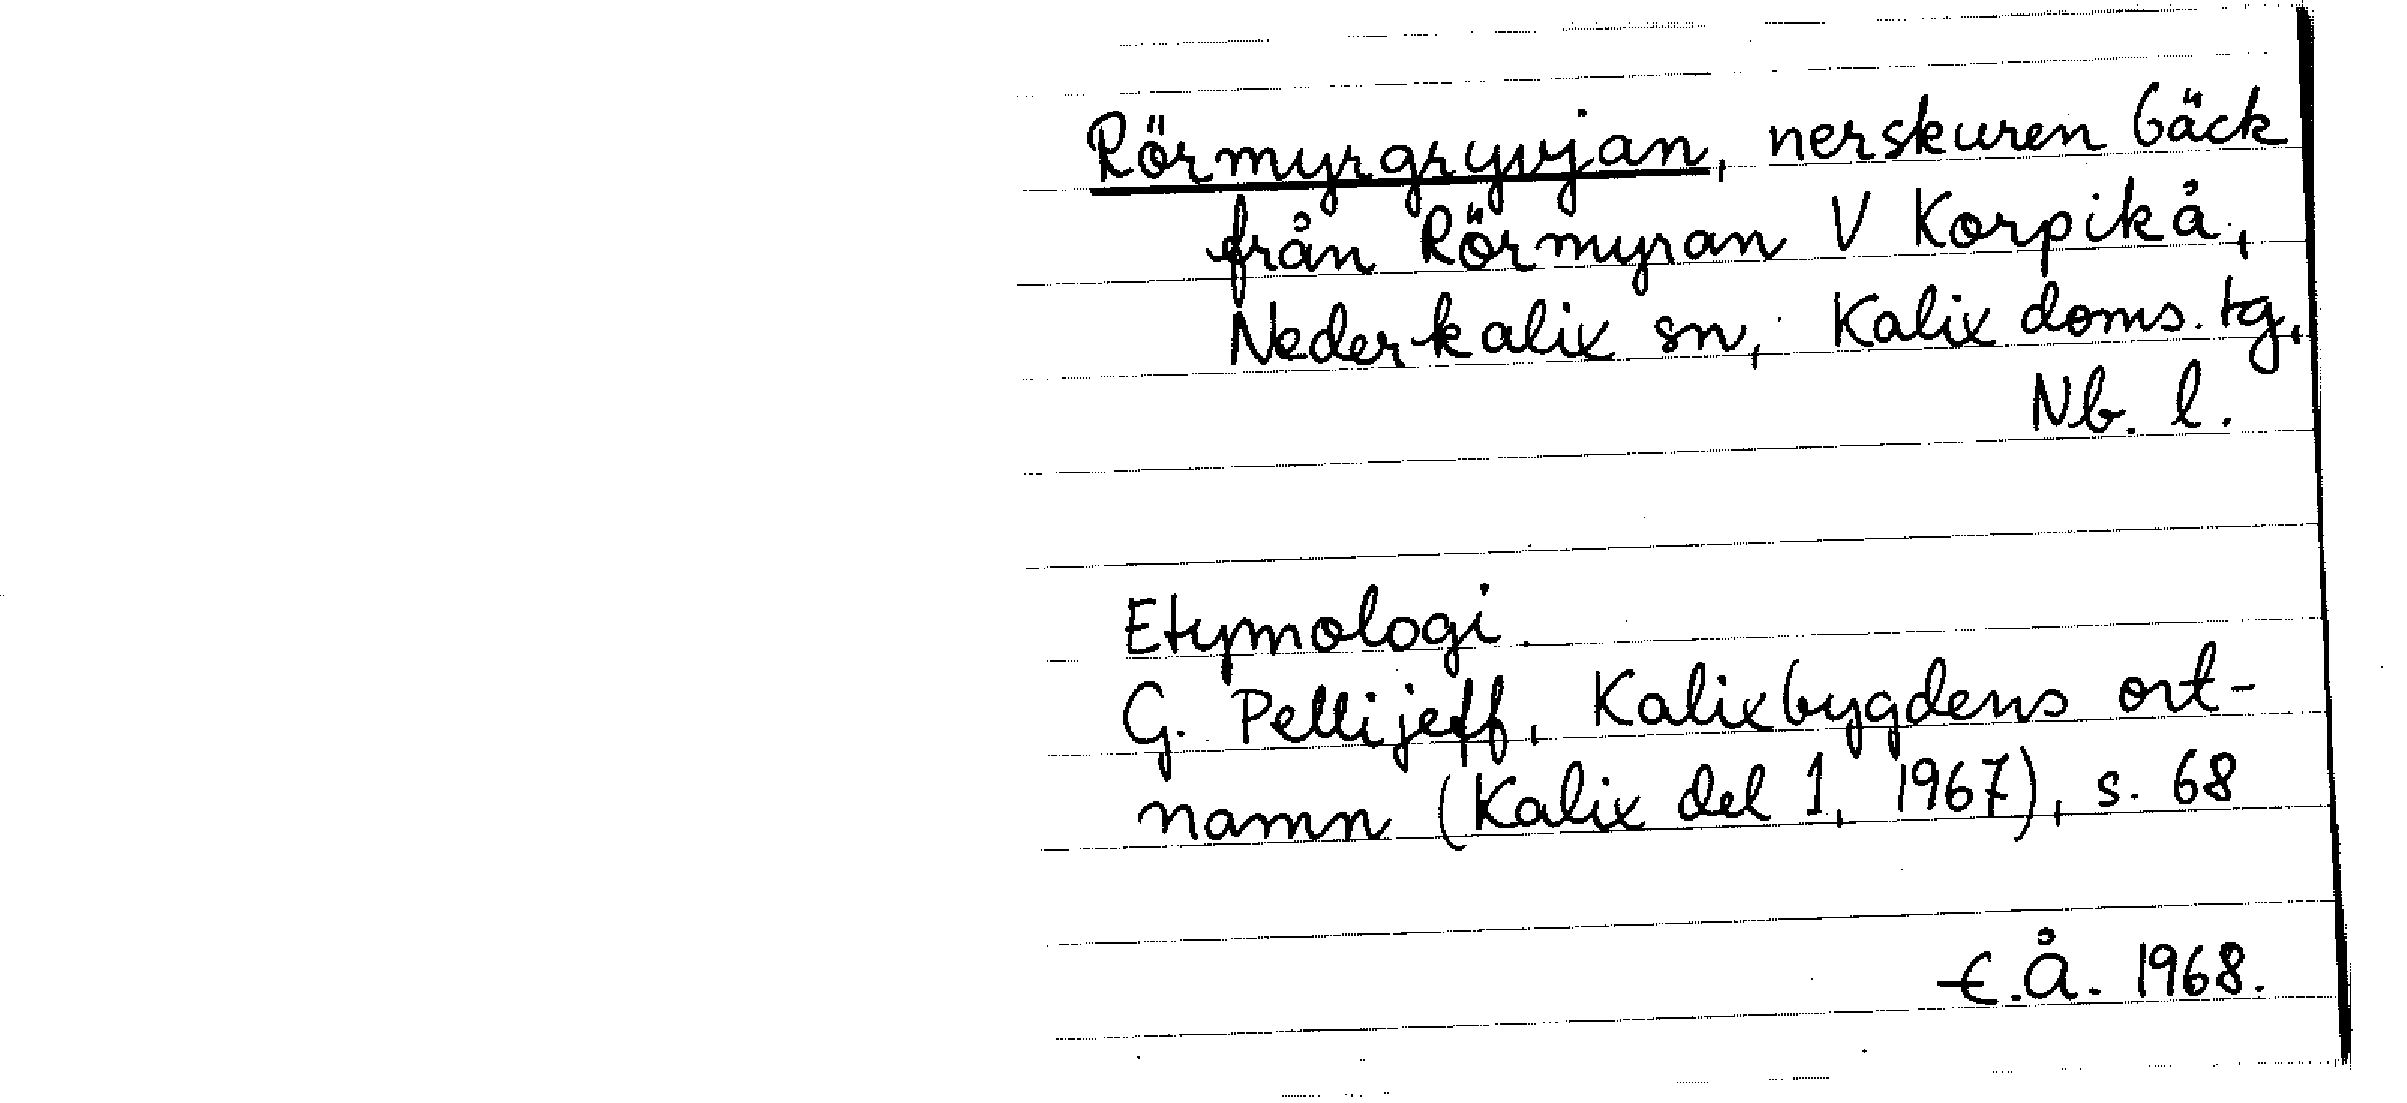 Rörmyrgryvjan, nerskuren bäck
från Rörmyran V Korpikå,
Nederkalix sn, Kalix doms. tg,
Nb. l.
Etymologi
G. Pellijeff, Kalixbygdens ort-
namn (Kalix del 1, 1967), s. 68
E.Å. 1968.